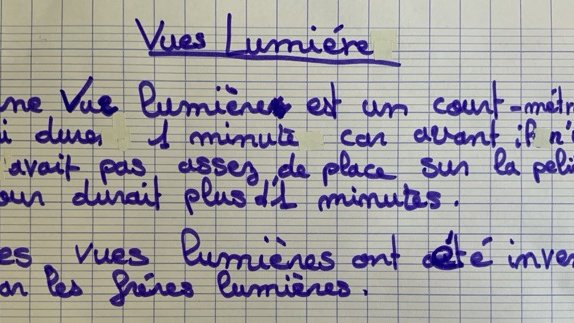 Vues Lumiére
ne Vue lumière est un court-mét
i dure 1 minute car avant il n'
avait pas assez de place sur la peli
our durait plus d'1 minutes.
es vues lumières ont été inven
ar les fréres lumières.